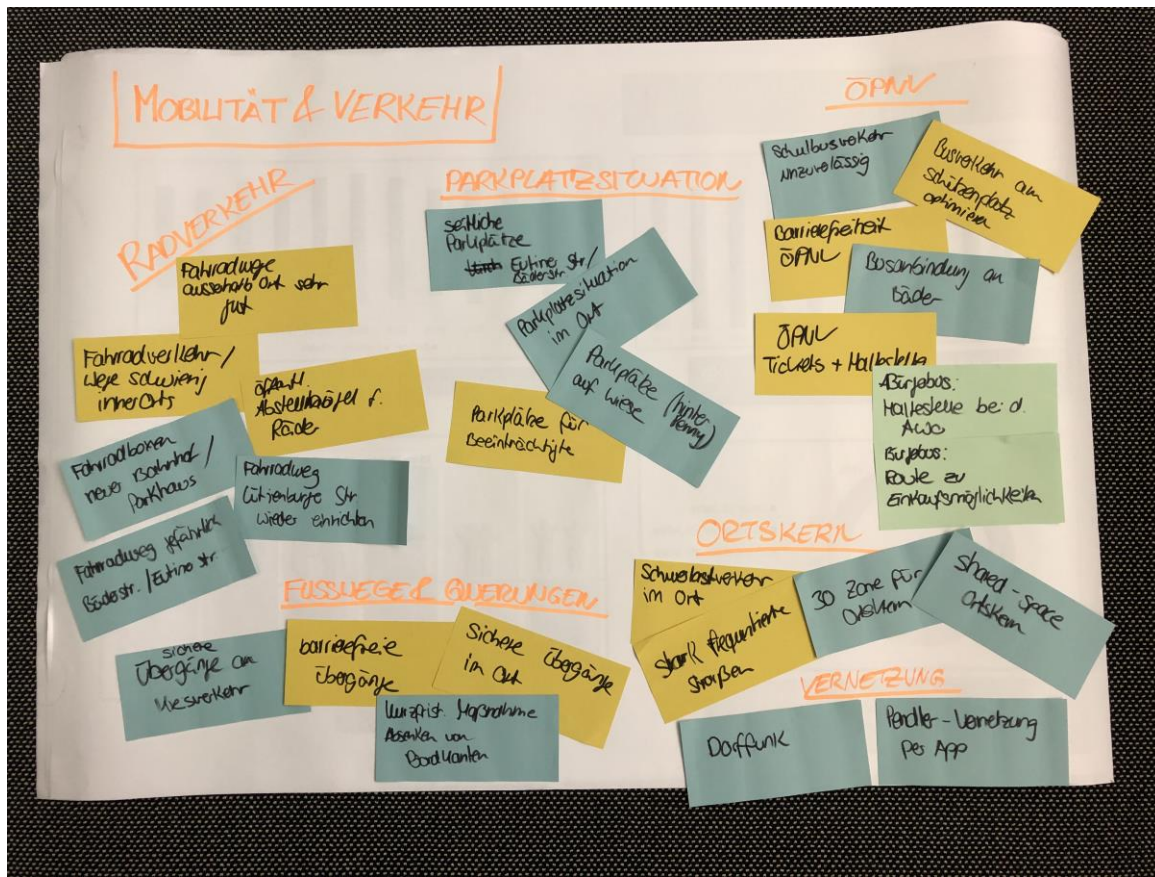 MOBILITÄT & VERKEHR
RADVERKEHR
Fahrradwege
ausserhalb Ort sehr
gut
Fahrradverkehr/
Wege schwierig
innerOrts
öffentl.
Abstellmögl. f.
Räder
Fahrradboxen
neuer Bahnhof/
Parkhaus
Fahrradweg
Lütjenburger Str.
wieder einrichten
Fahrradweg gefährlich
Bäderstr./Eutiner Str.
PARKPLATZSITUATION
seitliche
Parkplätze
Eutiner Str/
Bäderstr.
Parkplatzsituation
im Ort
Parkplätze (hinter
Penny)
auf Wiese
Parkplätze für
Beeinträchtigte
ÖPNV
Schulbusverkehr
unzuverlässig
Busverkehr am
Schützenplatz
optimieren
Barrierefreiheit
ÖPNV
Busanbindung an
Bäder
ÖPNV
Tickets + Haltestelle
Bürgerbus:
Haltestelle bei d.
AWO
Bürgerbus:
Route zu
Einkaufsmöglichkeiten
FUSSWEGE & QUERUNGEN
sichere
Übergänge am
barrierefreie
Übergänge
Sichere Übergänge
im Ort
Kurzfrist. Maßnahme
Absenken von
Bordkanten
ORTSKERN
Schwerlastverkehr
im Ort
stark frequentierte
Straßen
30 Zone für
Ortskern
Shared-Space
Ortskern
VERNETZUNG
Dorffunk
Pendler-Vernetzung
per App